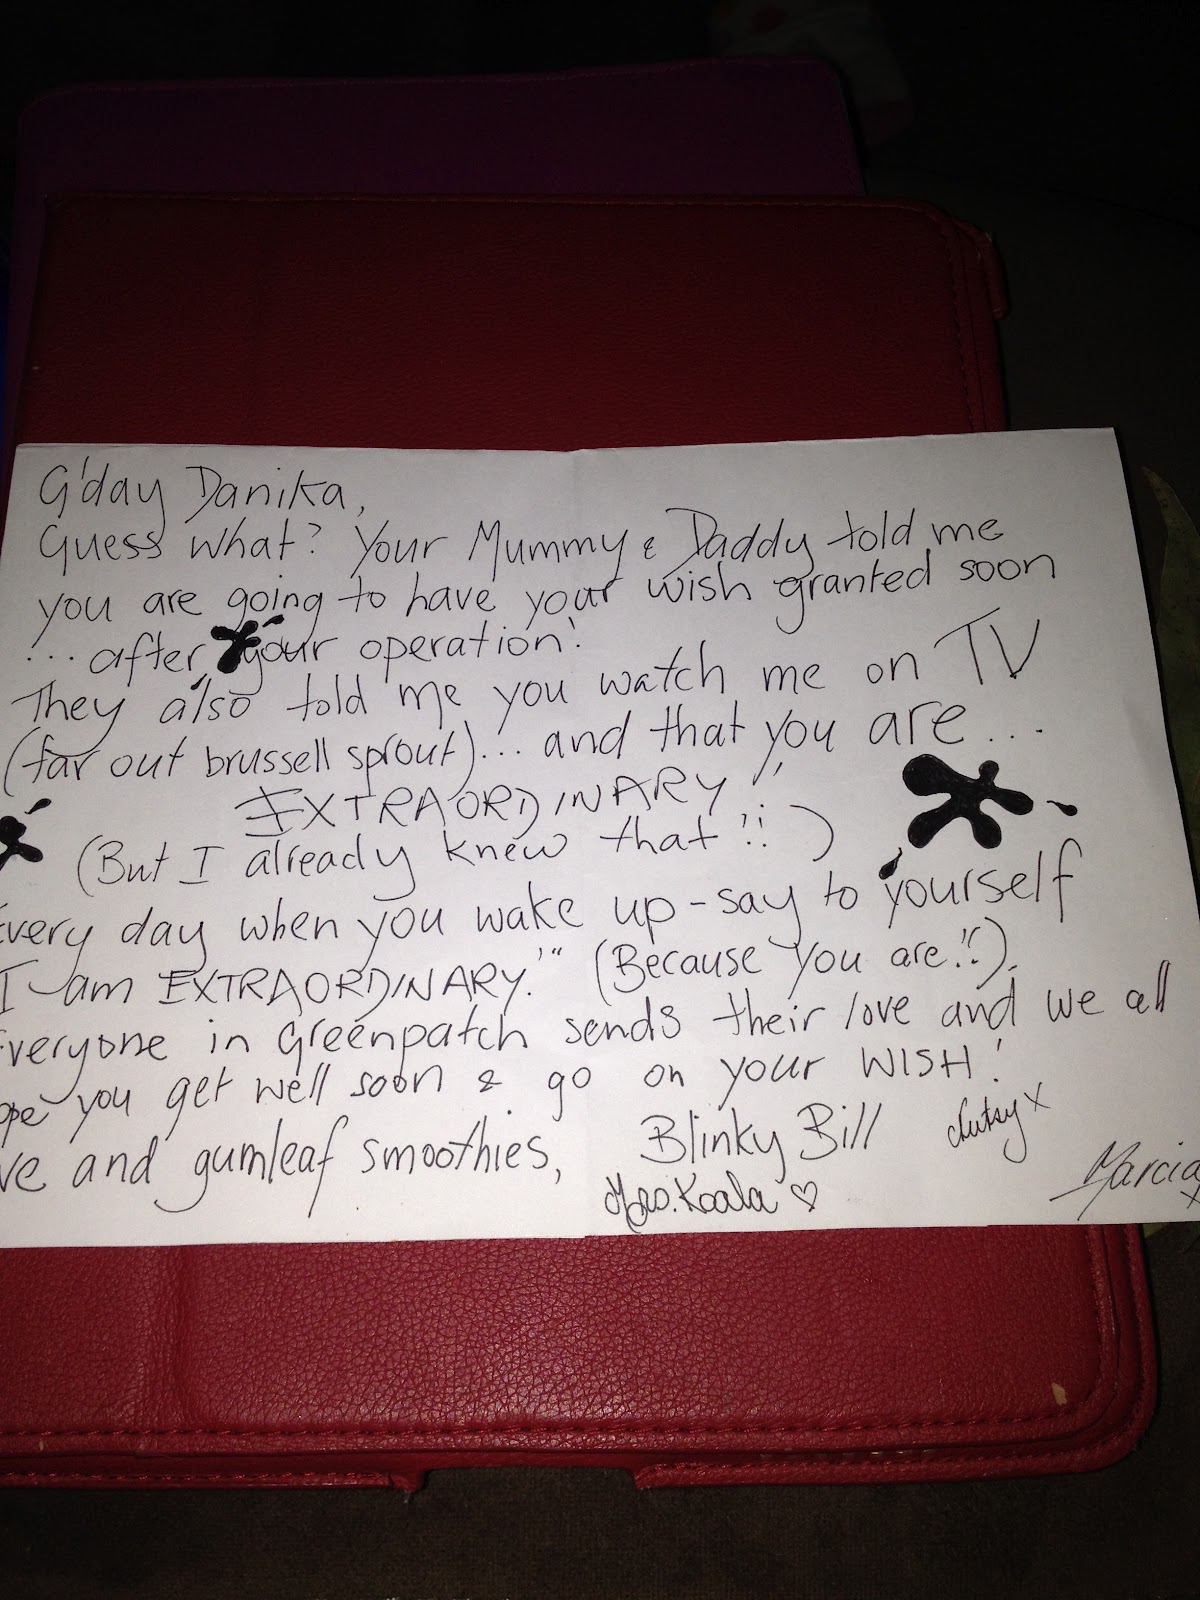 G'day Danika,
Guess what? Your Mummy & Daddy told me
you are going to have your wish granted soon
...after your operation!
They also told me you watch me on TV
(far out brussell sprout)... and that you are...
EXTRAORDINARY!!
(But I already knew that!!)
Every day when you wake up - say to yourself
I am EXTRAORDINARY!" (Because you are!!).
Everyone in Greenpatch sends their love and we all
ope you get well soon & go on your WISH!
ve and gumleaf smoothies, Blinky Bill
Nutsy x
Mrs. Koala ♡
Marcia x